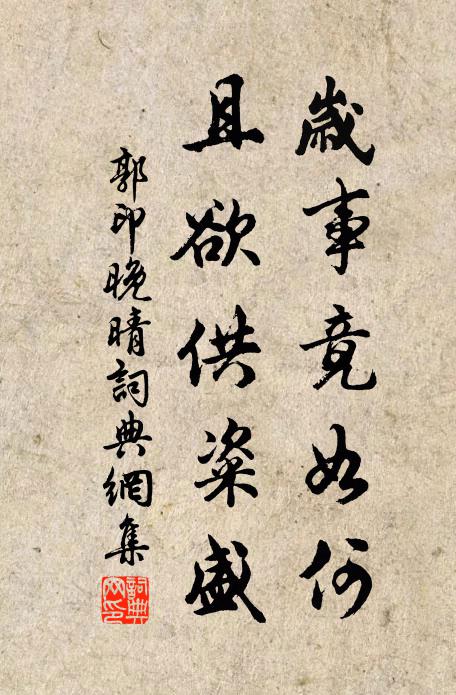 歲事竟如何
且欲供粢盛
郭印晚晴詞典網集
詞典網印